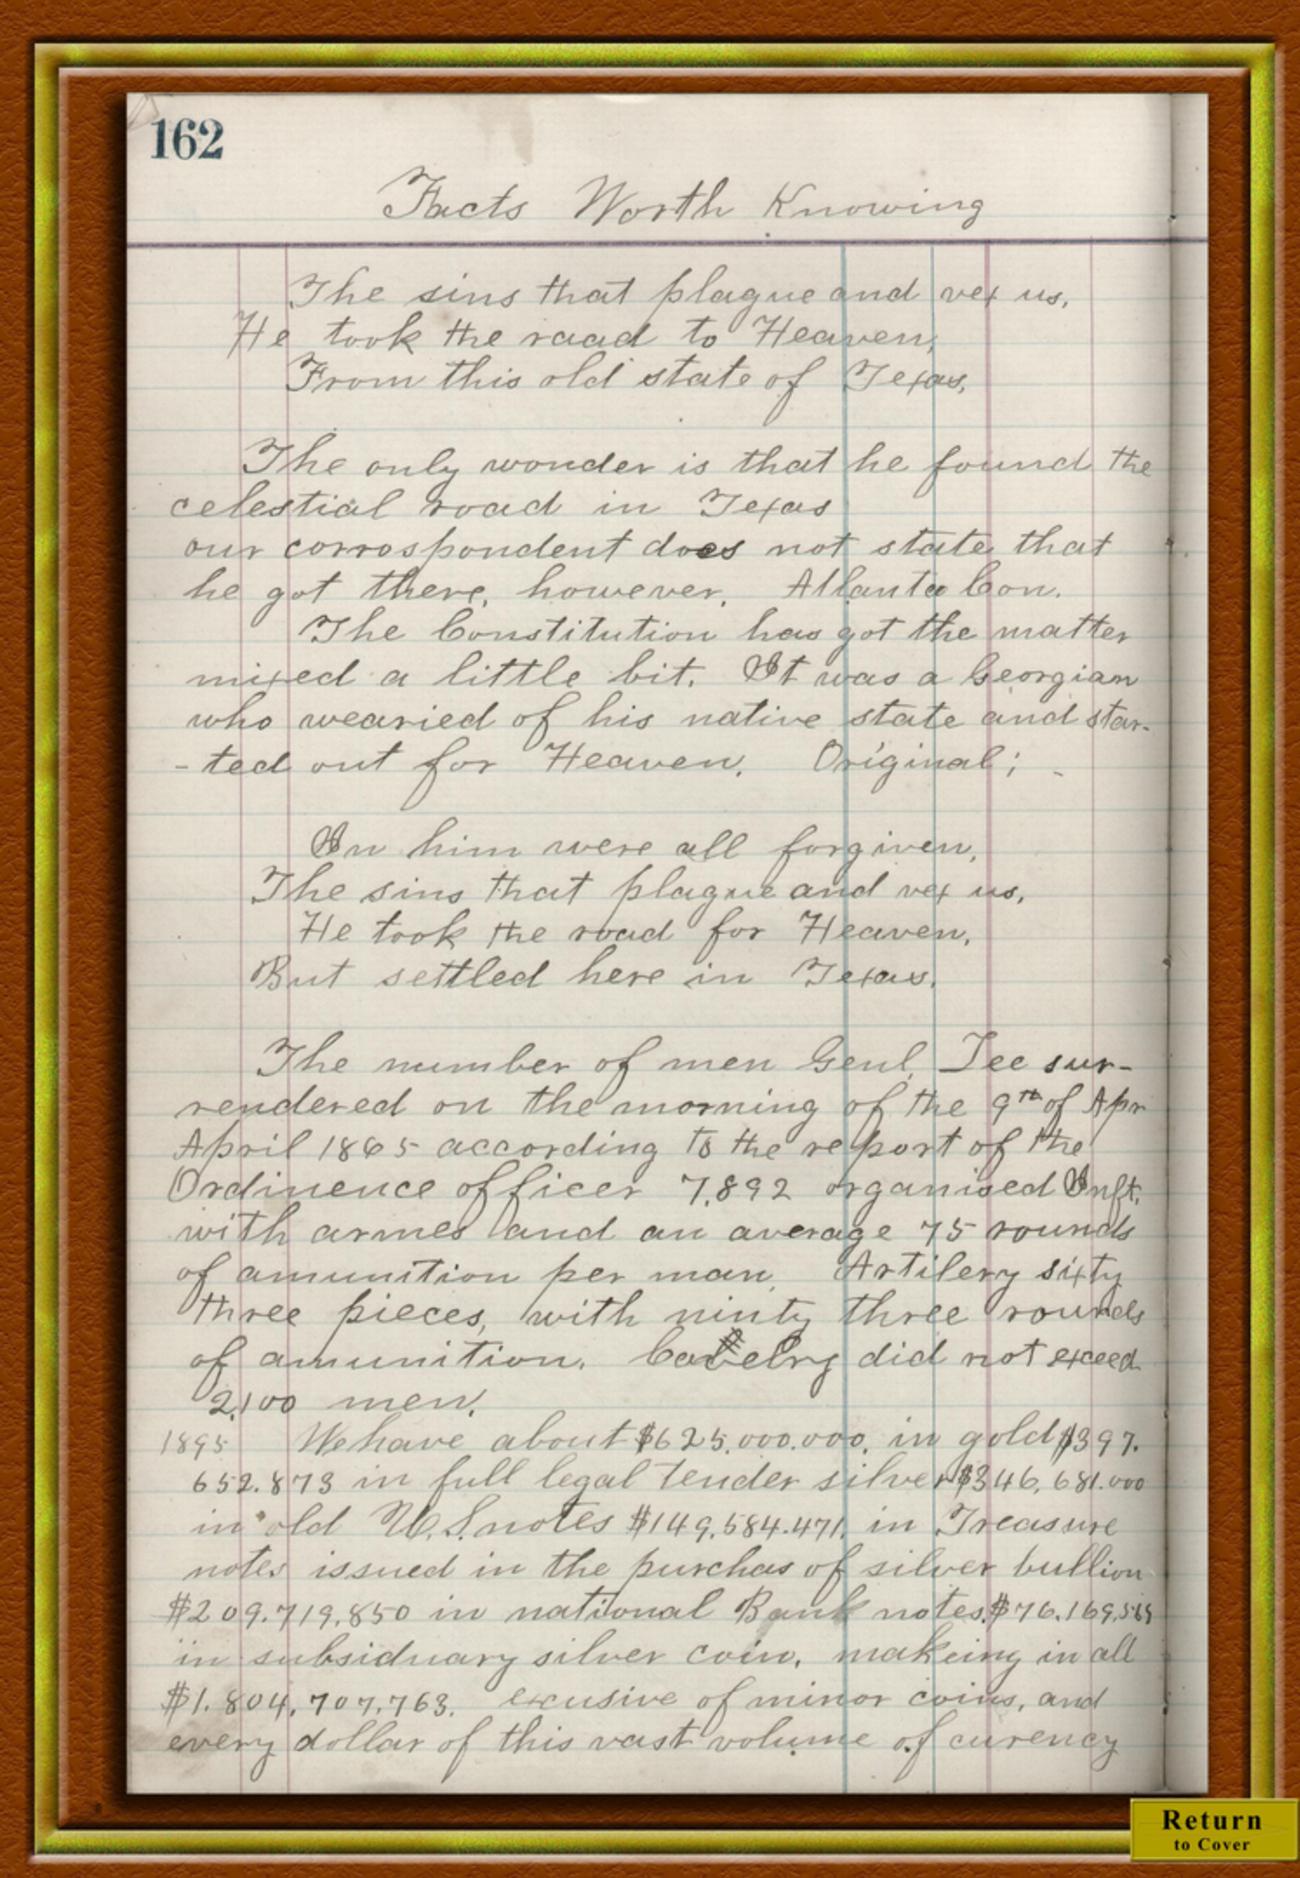 162
Facts Worth Knowing
The sins that plague and vex us,
He took the raad to Heaven,
From this old state of Texas,
The only wonder is that he found the
celestial road in Texas
our corrospondent does not state that
he got there, however, Atlanta Con.
The Constitution has got the matter
mixed a little bit. It was a Georgian
who wearied of his native state and star-
-ted out for Heaven. Original;
In him were all forgiven,
The sins that plague and vex us,
He took the road for Heaven,
But settled here in Texas.
The number of men Genl. Lee sur-
rendered on the morning of the 9th of Apr
April 1865 according to the report of the
Ordinence officer 7,892 organised Inft.
with armes and an average 75 rounds
of amunition per man, Artilery sixty
three pieces, with ninty three rounds
of amunition. Cavelry did not exceed
2,100 men.
1895 We have about $625,000.000, in gold $397.
652.873 in full legal tender silver $346,681.000
in old U.S. notes $149,584.471, in Treasure
notes issued in the purchas of silver bullion
$209.719.850 in national Bank notes, $76.169,569
in subsiduary silver coin, makeing in all
$1.804,707,763. excusive of minor coins, and
every dollar of this vast volume of curency
Return
to Cover